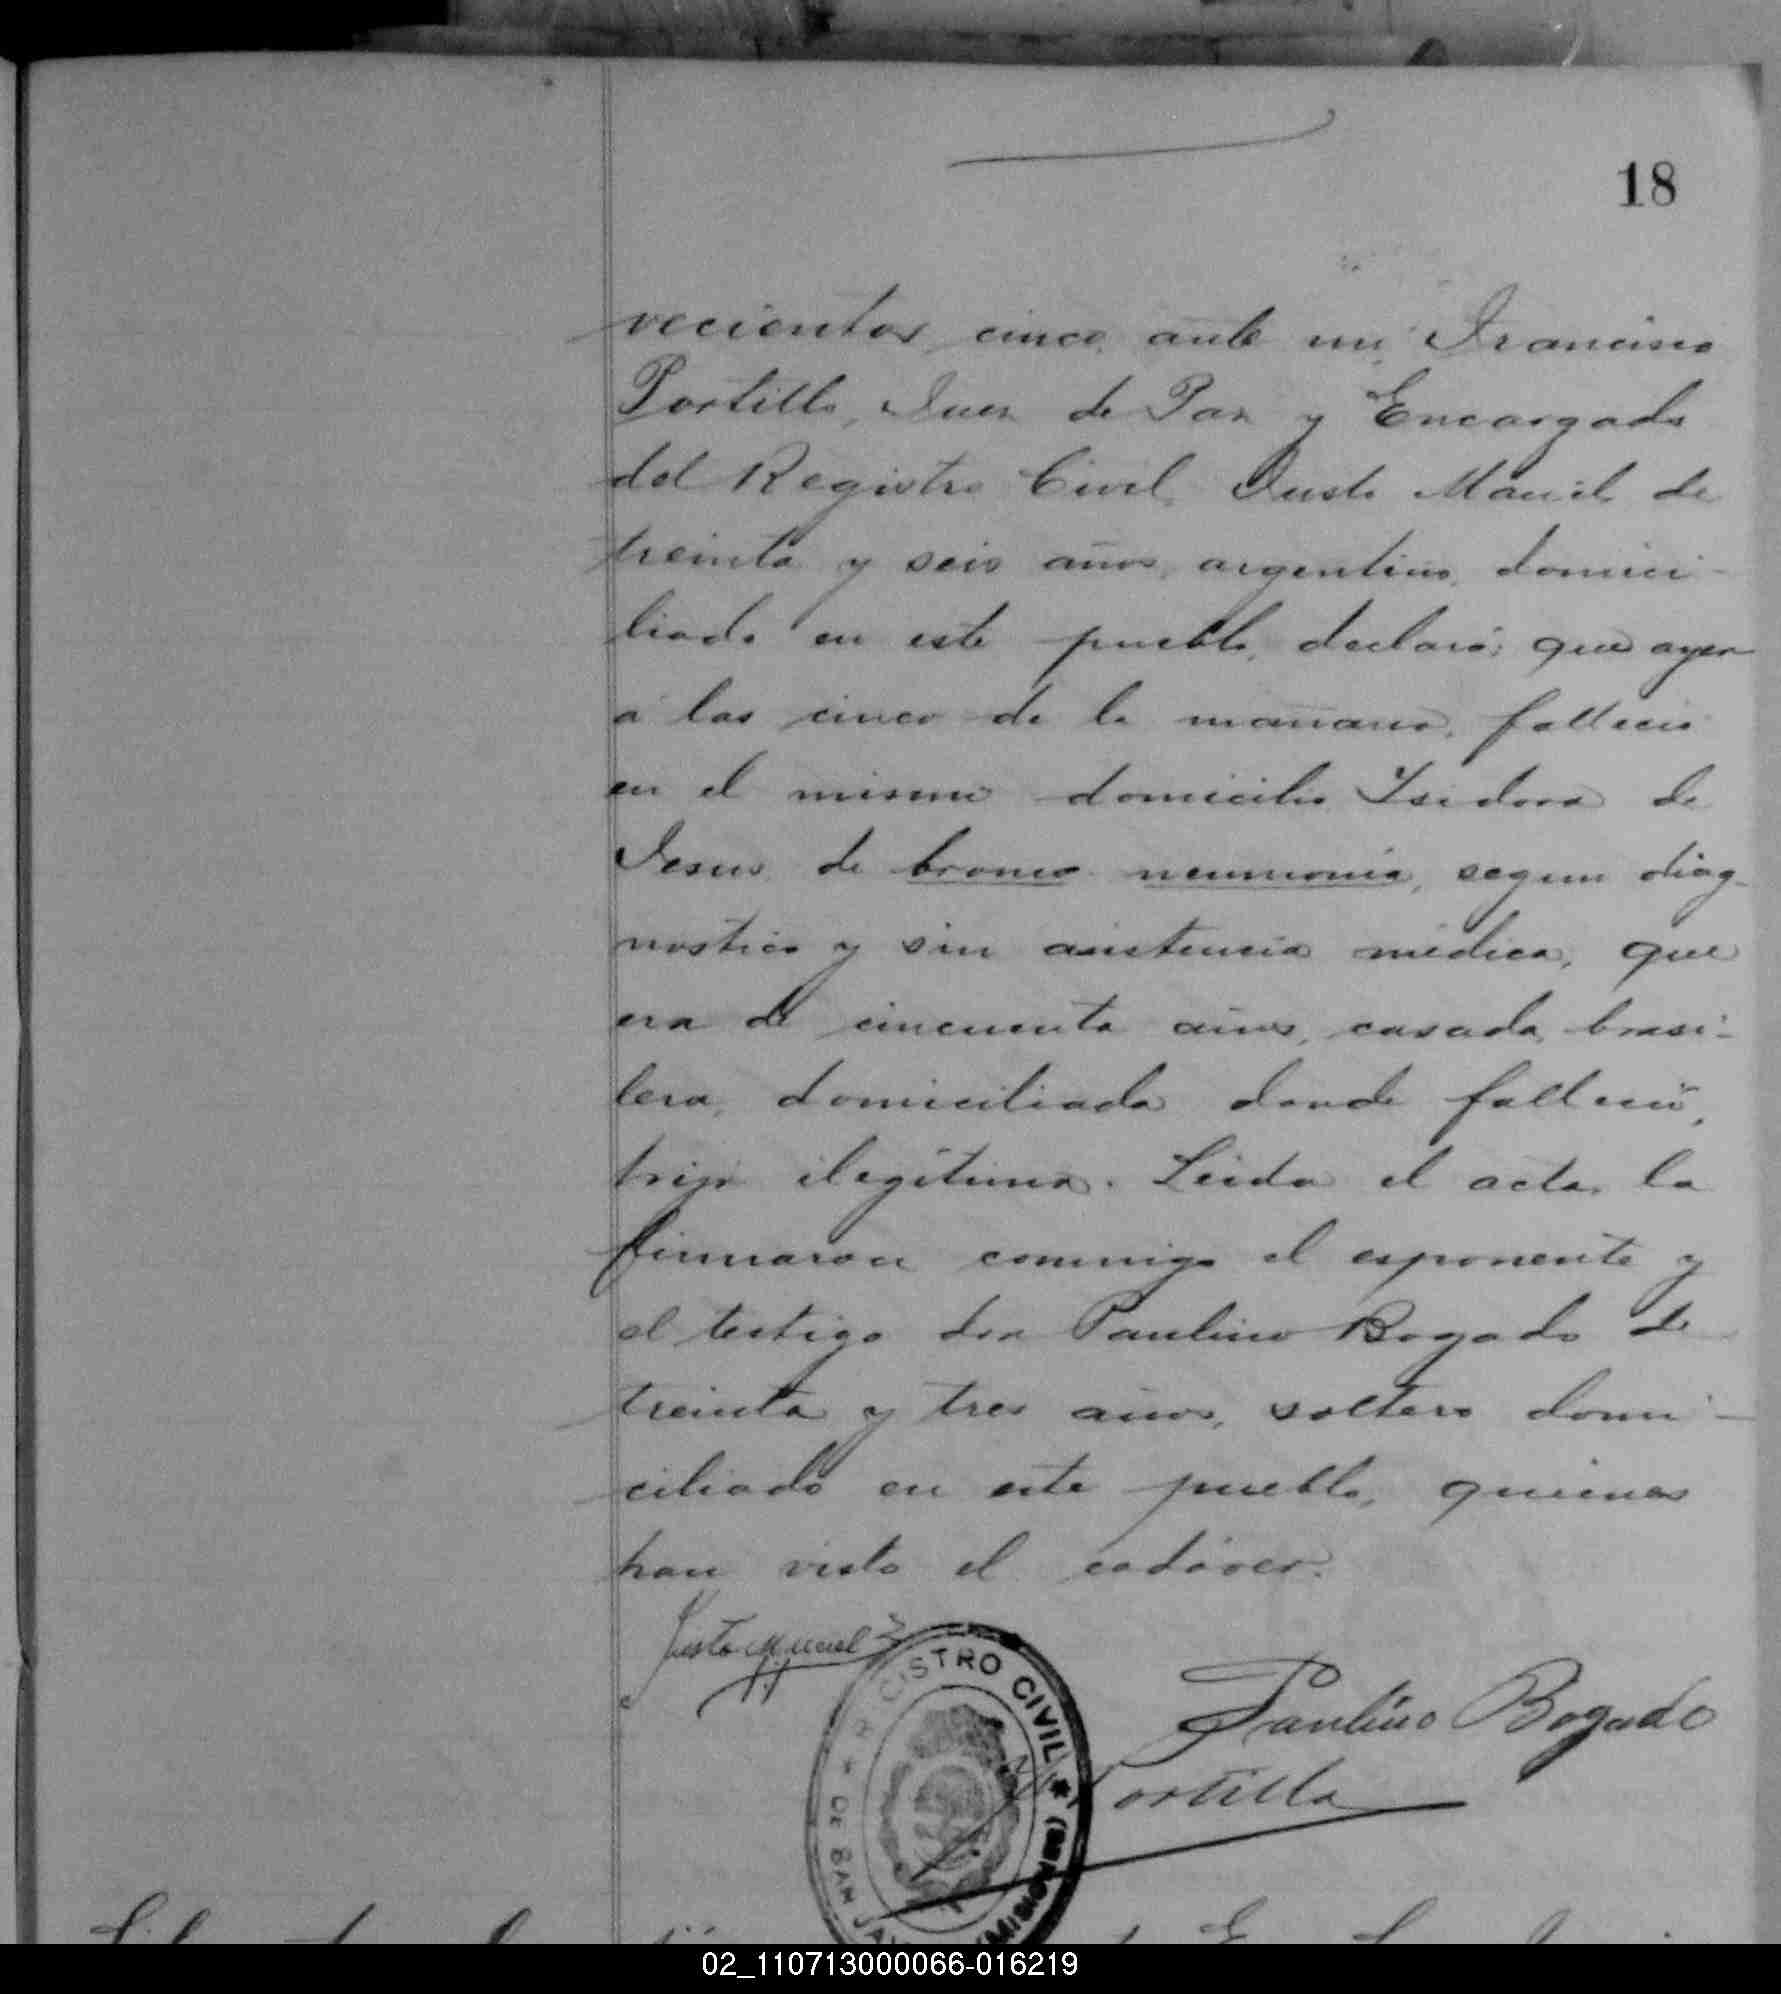 18
vecientos cinco, ante mi, Francisco
Portillo, Juez de Paz y Encargado
del Registro Civil, Justo Muciel de
treinta y seis años, argentino, domici-
liado en este pueblo, declaró: que ayer
a las cinco de la mañana, falleció
en el mismo domicilio Isidora de
Jesus, de bronco neumonia, segun diag-
nostico y sin asistencia médica, que
era de cincuenta años, casada, brasi-
lera, domiciliada donde falleció,
hija ilegítima. Leida el acta, la
firmaron conmigo el esponente y
el testigo don Paulino Bogado de
treinta y tres años, soltero domi-
ciliado en este pueblo, quienes
han visto el cadáver.
Justo
Paulino Bogado
Portillo
REGISTRO CIVIL * (MISIONES) * DE SAN JAV
02_110713000066-016219